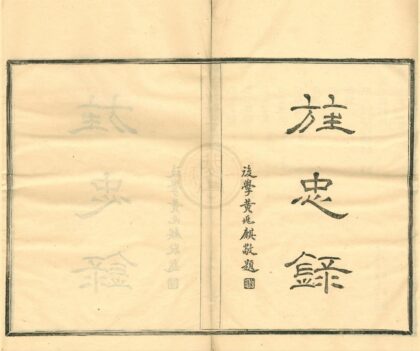 旌忠錄
後學黃兆麒敬題